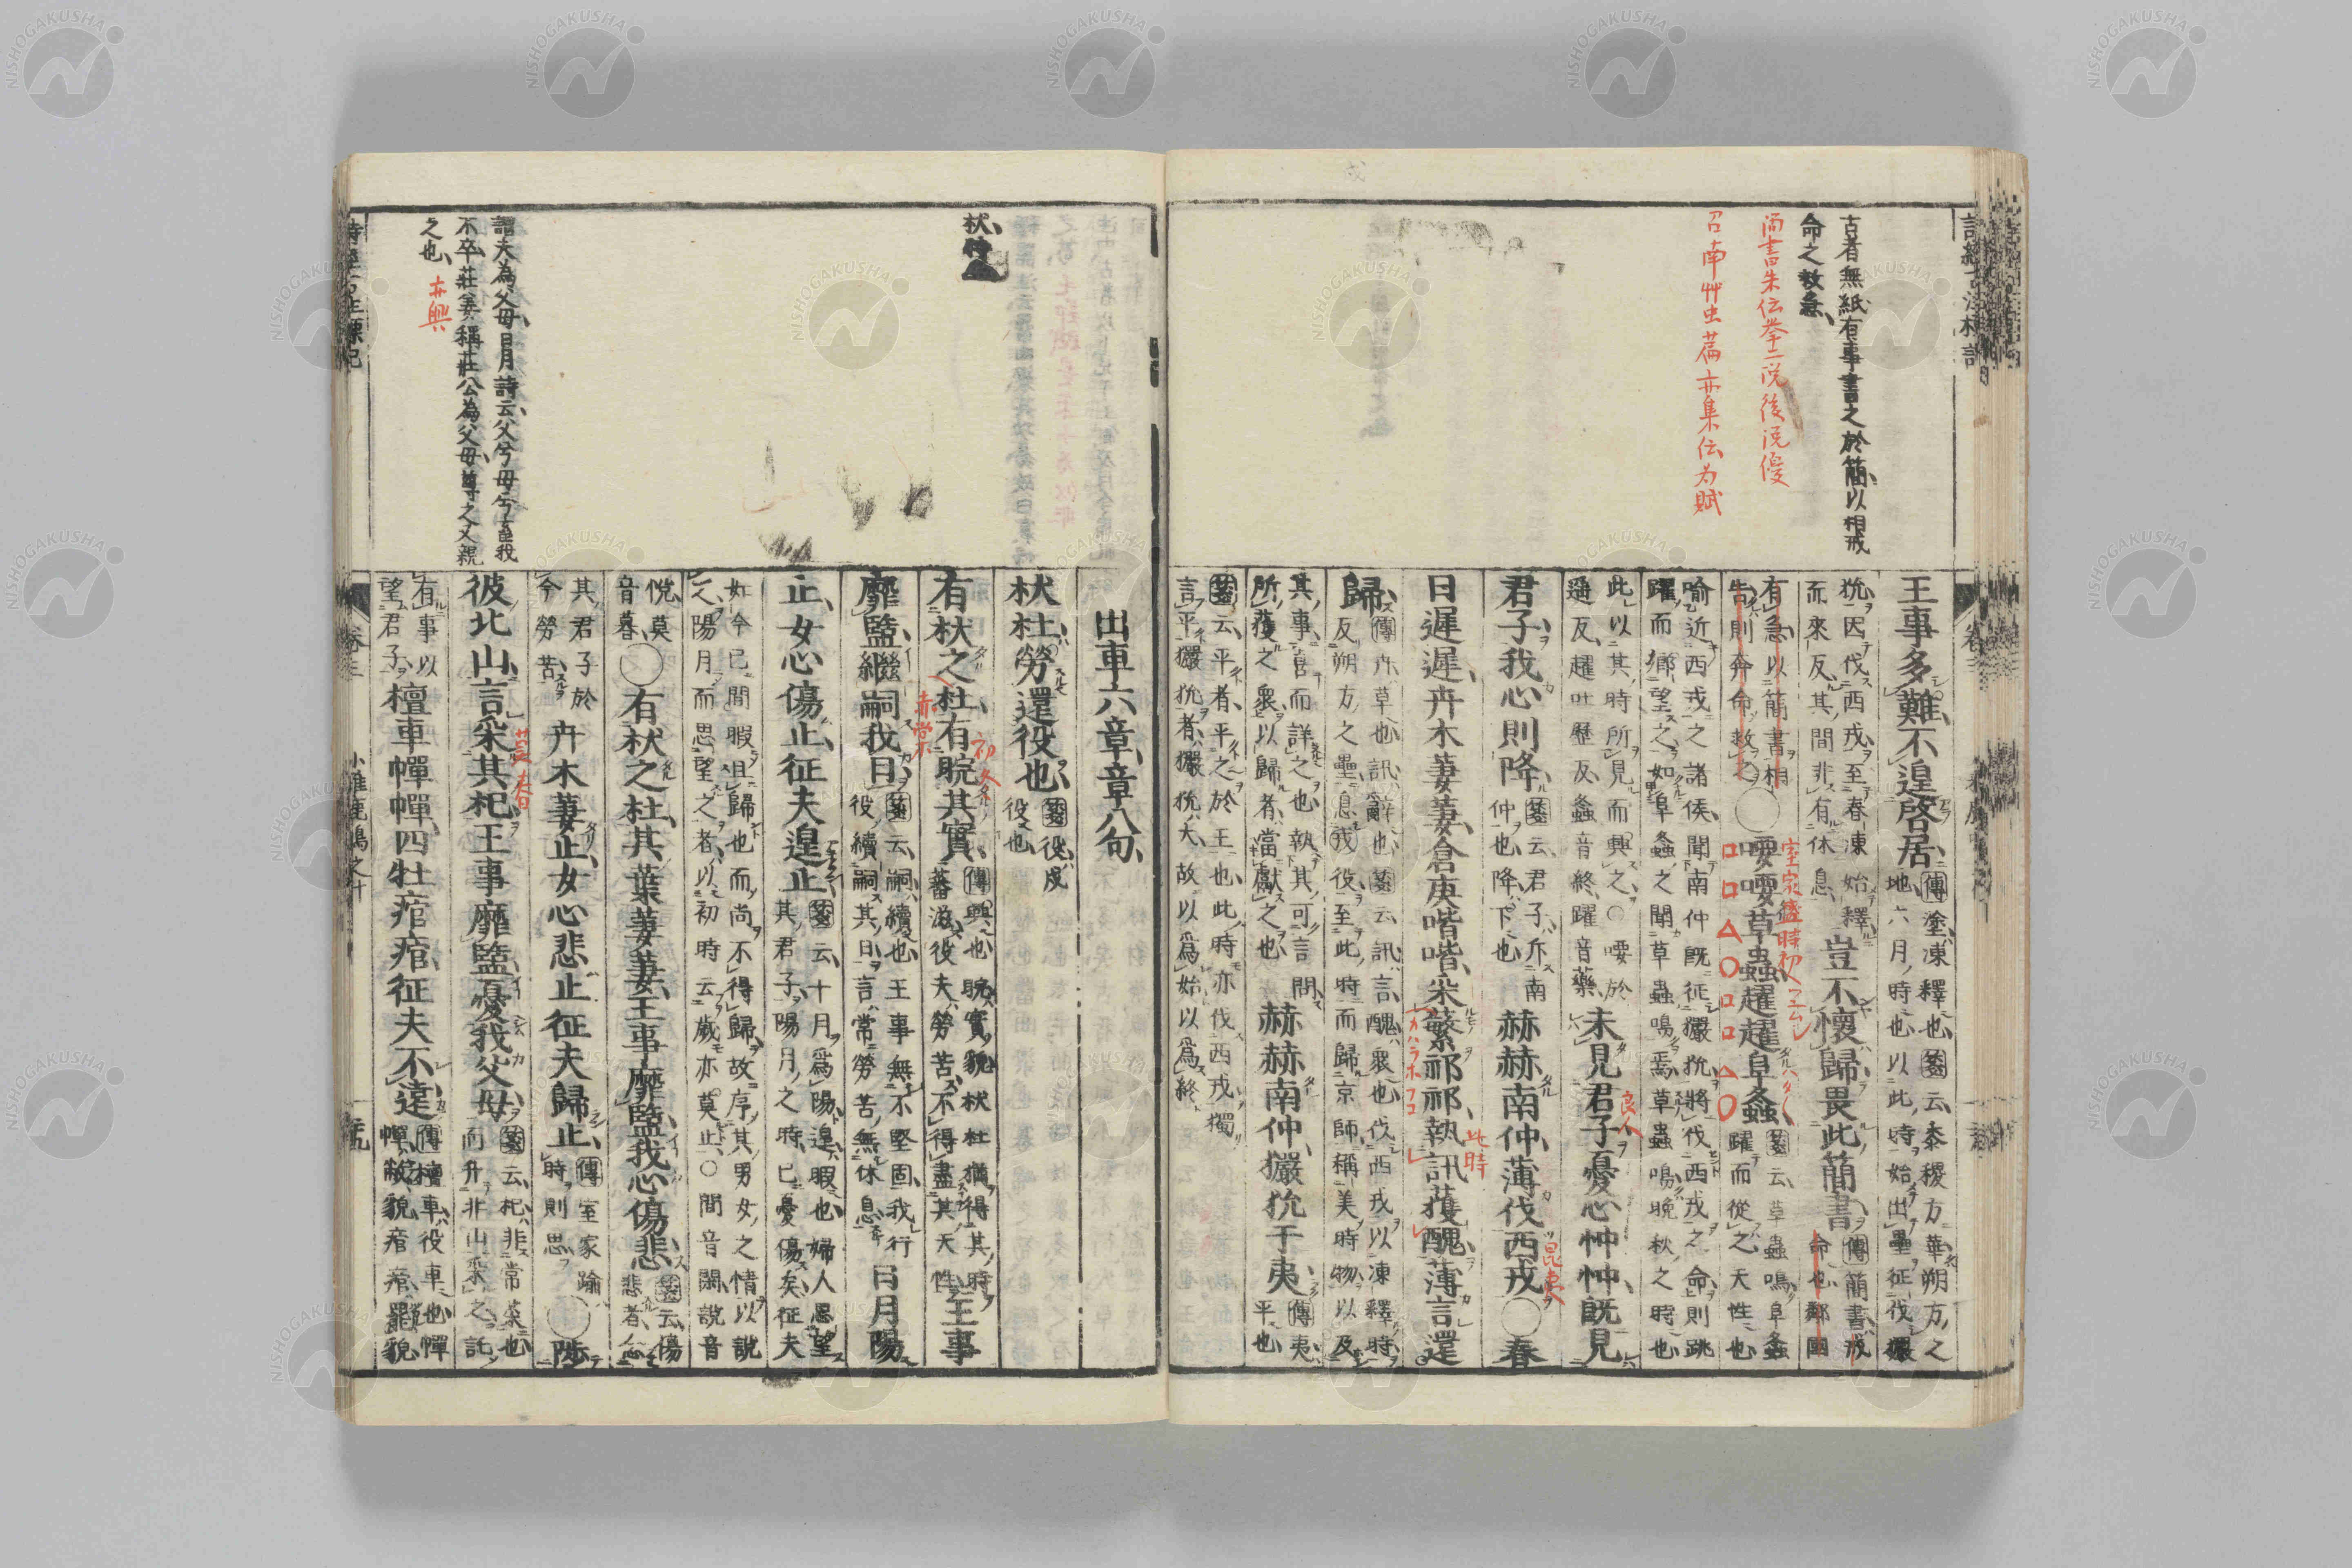 古者無紙有事書之於簡以相戒
命之救急
而書朱伝挙二説後説優
召南艸虫篇亦集伝为賦
王事多難不遑啓居傳塗凍釋也箋云黍稷方華朔方之
地六月時也以此時始出壘征伐玁
狁因伐西戎至春凍始釋
而來反其間非有休息
豈不懷歸畏此簡書傳簡書戒
命也鄰國
有急以簡書相
告則奔命救之
〇喓喓草蟲趯趯阜螽箋云草蟲鳴阜螽
躍而從之天性也
室家盛時
喻近西戎之諸侯聞南仲既征玁狁將伐西戎之命則跳
躍而鄉望之如阜螽之聞草蟲鳴焉草蟲鳴晚秋之時也
此以其時所見而興之〇喓於
遥反趯吐歷反螽音終躍音藥
未見君子憂心忡忡既見
良人
君子我心則降箋云君子斥南
仲也降下也
赫赫南仲薄伐西戎〇春
昆夷
日遲遲卉木萋萋倉庚喈喈采蘩祁祁執訊獲醜薄言還
此時
歸傳卉草也訊辭也箋云訊言醜衆也伐西戎以凍釋時
反朔方之壘息戍役至此時而歸京師稱美時物以及
其事喜而詳之也執其可言問
所獲之衆以歸者當獻之也
赫赫南仲玁狁于夷傳夷
平也
箋云平者平之於王也此時亦伐西戎獨
言平玁狁者玁狁大故以爲始以爲終
出車六章章八句
杕杜勞還役也箋役戍
役也
有杕之杜有睆其實傳興也睆實貌杕杜猶得其時
蕃滋役夫勞苦不得盡其天性
王事
赤棠
初冬
靡盬繼嗣我日箋云嗣續也王事無不堅固我行
役續嗣其日言常勞苦無休息
日月陽
止女心傷止征夫遑止箋云十月爲陽遑暇也婦人思望
其君子陽月之時已憂傷矣征夫
如今已間暇且歸也而尚不得歸故序其男女之情以說
之陽月而思望之者以初時云歲亦莫止〇間音閑說音
悦莫
音暮
〇有杕之杜其葉萋萋王事靡盬我心傷悲箋云傷
悲者念
其君子於
今勞苦
卉木萋止女心悲止征夫歸止傳室家踰
時則思
〇陟
彼北山言采其杞王事靡盬憂我父母箋云杞非常菜也
而升北山采之託
暮春
有事以
望君子
檀車幝幝四牡痯痯征夫不遠傳檀車役車也幝
幝敝貌痯痯罷貌
謂夫為父母日月詩云父兮母兮畜我
不卒莊姜稱莊公為父母尊之又親
之也
亦興